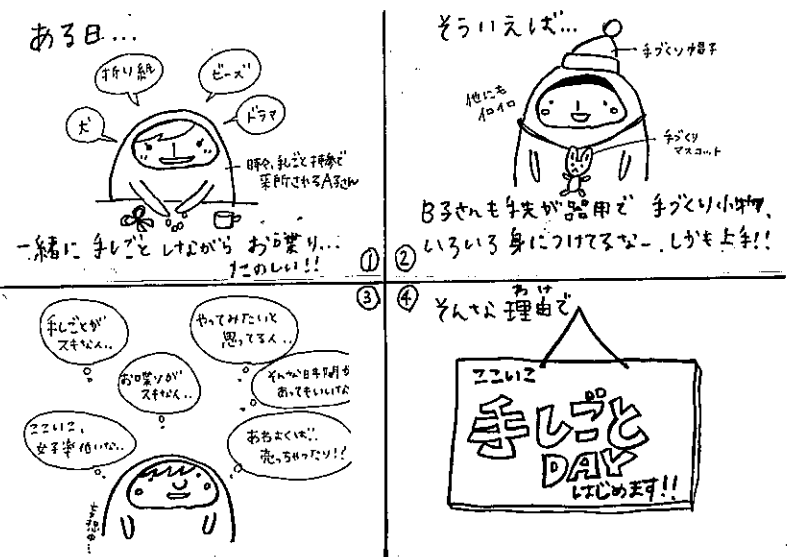 ある日...
折り紙
ビーズ
犬
ドラマ
時々、手しごと持参で
来所されるA子さん
一緒に手しごとしながらお喋り...
たのしい!!
①
そういえば...
手づくり帽子
他にも
イロイロ
手づくり
マスコット
B子さんも手先が器用で 手づくり小物、
いろいろ身につけてるなー、しかも上手!!
②
③
手しごとが
スキな人..
やってみたいと
思ってる人..
お喋りが
スキな人..
そんな時間が
あってもいいな
ここいこ、
女子率低いな..
あわよくば..
売っちゃったり!?
妄想中...
④
そんな理由で
わけ
ここいこ
手しごと
DAY
はじめます!!